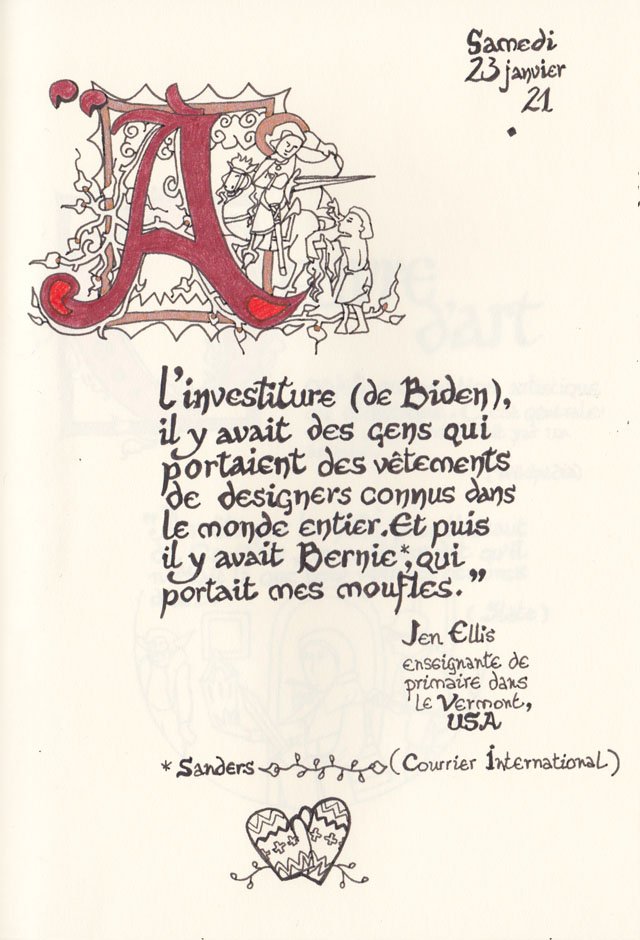 Samedi
23 janvier
21
“A
l'investiture (de Biden),
il y avait des gens qui
portaient des vêtements
de designers connus dans
le monde entier. Et puis
il y avait Bernie*, qui
portait mes moufles.”
Jen Ellis
enseignante de
primaire dans
le Vermont,
USA
* Sanders (Courrier International)